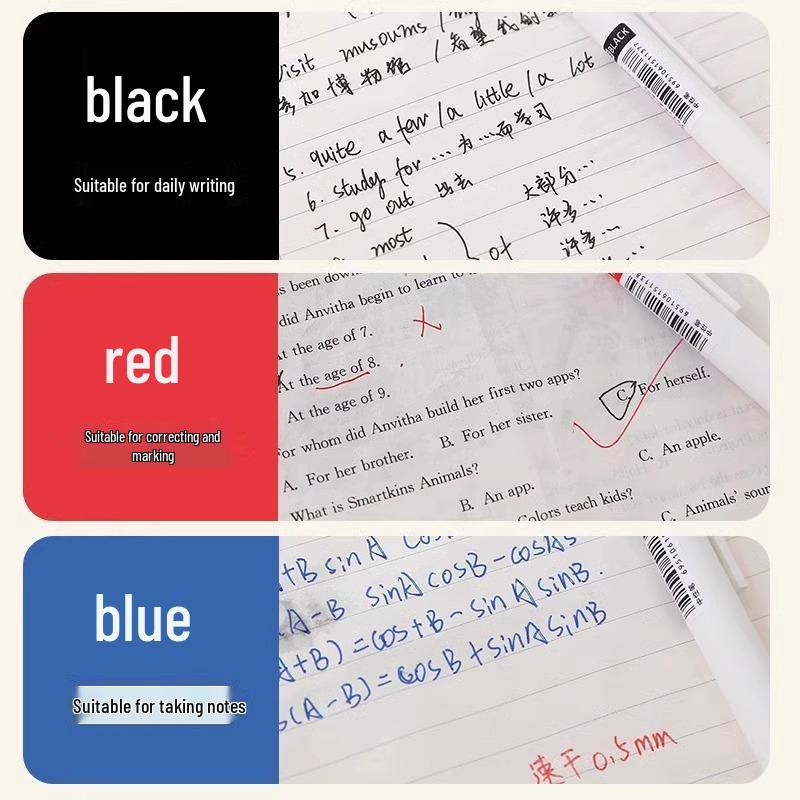 black
Suitable for daily writing
visit museums /
参加博物馆 /希望我们
5. quite a few /a little /a lot
6. study for ... 为...而学习
7. go out 出去
大部分...
most
许多...
of
许多...
BLACK
中性笔
red
Suitable for correcting and
marking
been down
did Anvitha begin to learn to
At the age of 7.
At the age of 8.
At the age of 9.
For whom did Anvitha build her first two apps?
A. For her brother. B. For her sister. C. For herself.
What is Smartkins Animals?
B. An app. C. An apple.
Colors teach kids?
C. Animals' sour
中性笔
blue
Suitable for taking notes
+B sinA cos
A-B sinA cosB-cosAs
A+B)=cos+B-sinAsinB.
s(A-B)=cosB+sinAsinB
速干0.5mm
中性笔